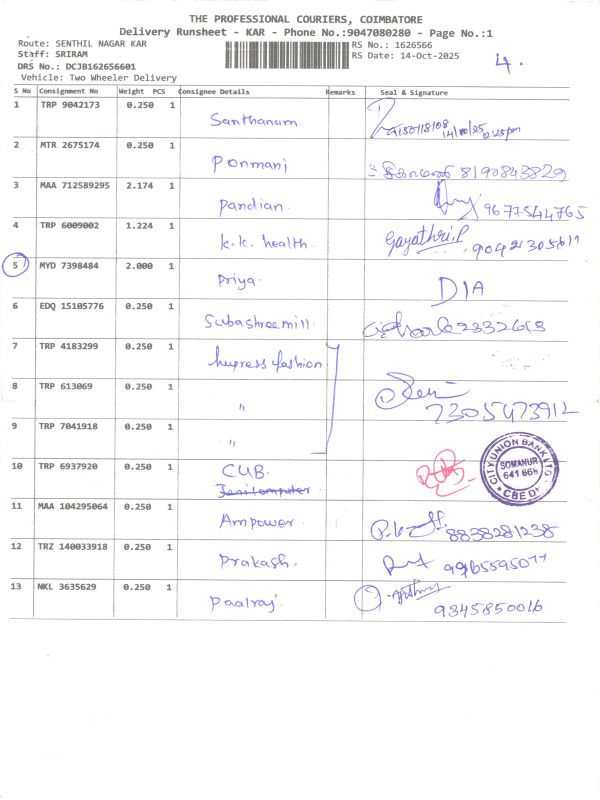 THE PROFESSIONAL COURIERS, COIMBATORE
Delivery Runsheet - KAR - Phone No.:9047080280 - Page No.:1
Route: SENTHIL NAGAR KAR
RS No.: 1626566
Staff: SRIRAM
RS Date: 14-Oct-2025
4.
DRS No.: DCJB162656601
Vehicle: Two Wheeler Delivery
S No Consignment No Weight PCS Consignee Details Remarks Seal & Signature
1 TRP 9042173 0.250 1 Santhanam
2 MTR 2675174 0.250 1 Ponmani 8190843829
3 MAA 712589295 2.174 1 Pandian. 9677544765
4 TRP 6009002 1.224 1 k.k. health. Gayathri.P
5 MYD 7398484 2.000 1 Priya. D/A
6 EDQ 15105776 0.250 1 Subashreemill.
7 TRP 4183299 0.250 1 fashion
8 TRP 613069 0.250 1 " 7305473912
9 TRP 7041918 0.250 1 "
10 TRP 6937920 0.250 1 CUB. CITY UNION BANK LTD. SOMANUR 641 668
11 MAA 104295064 0.250 1 Ampower. 8838281238
12 TRZ 140033918 0.250 1 Prakash.
13 NKL 3635629 0.250 1 Paalraj. 9345850016